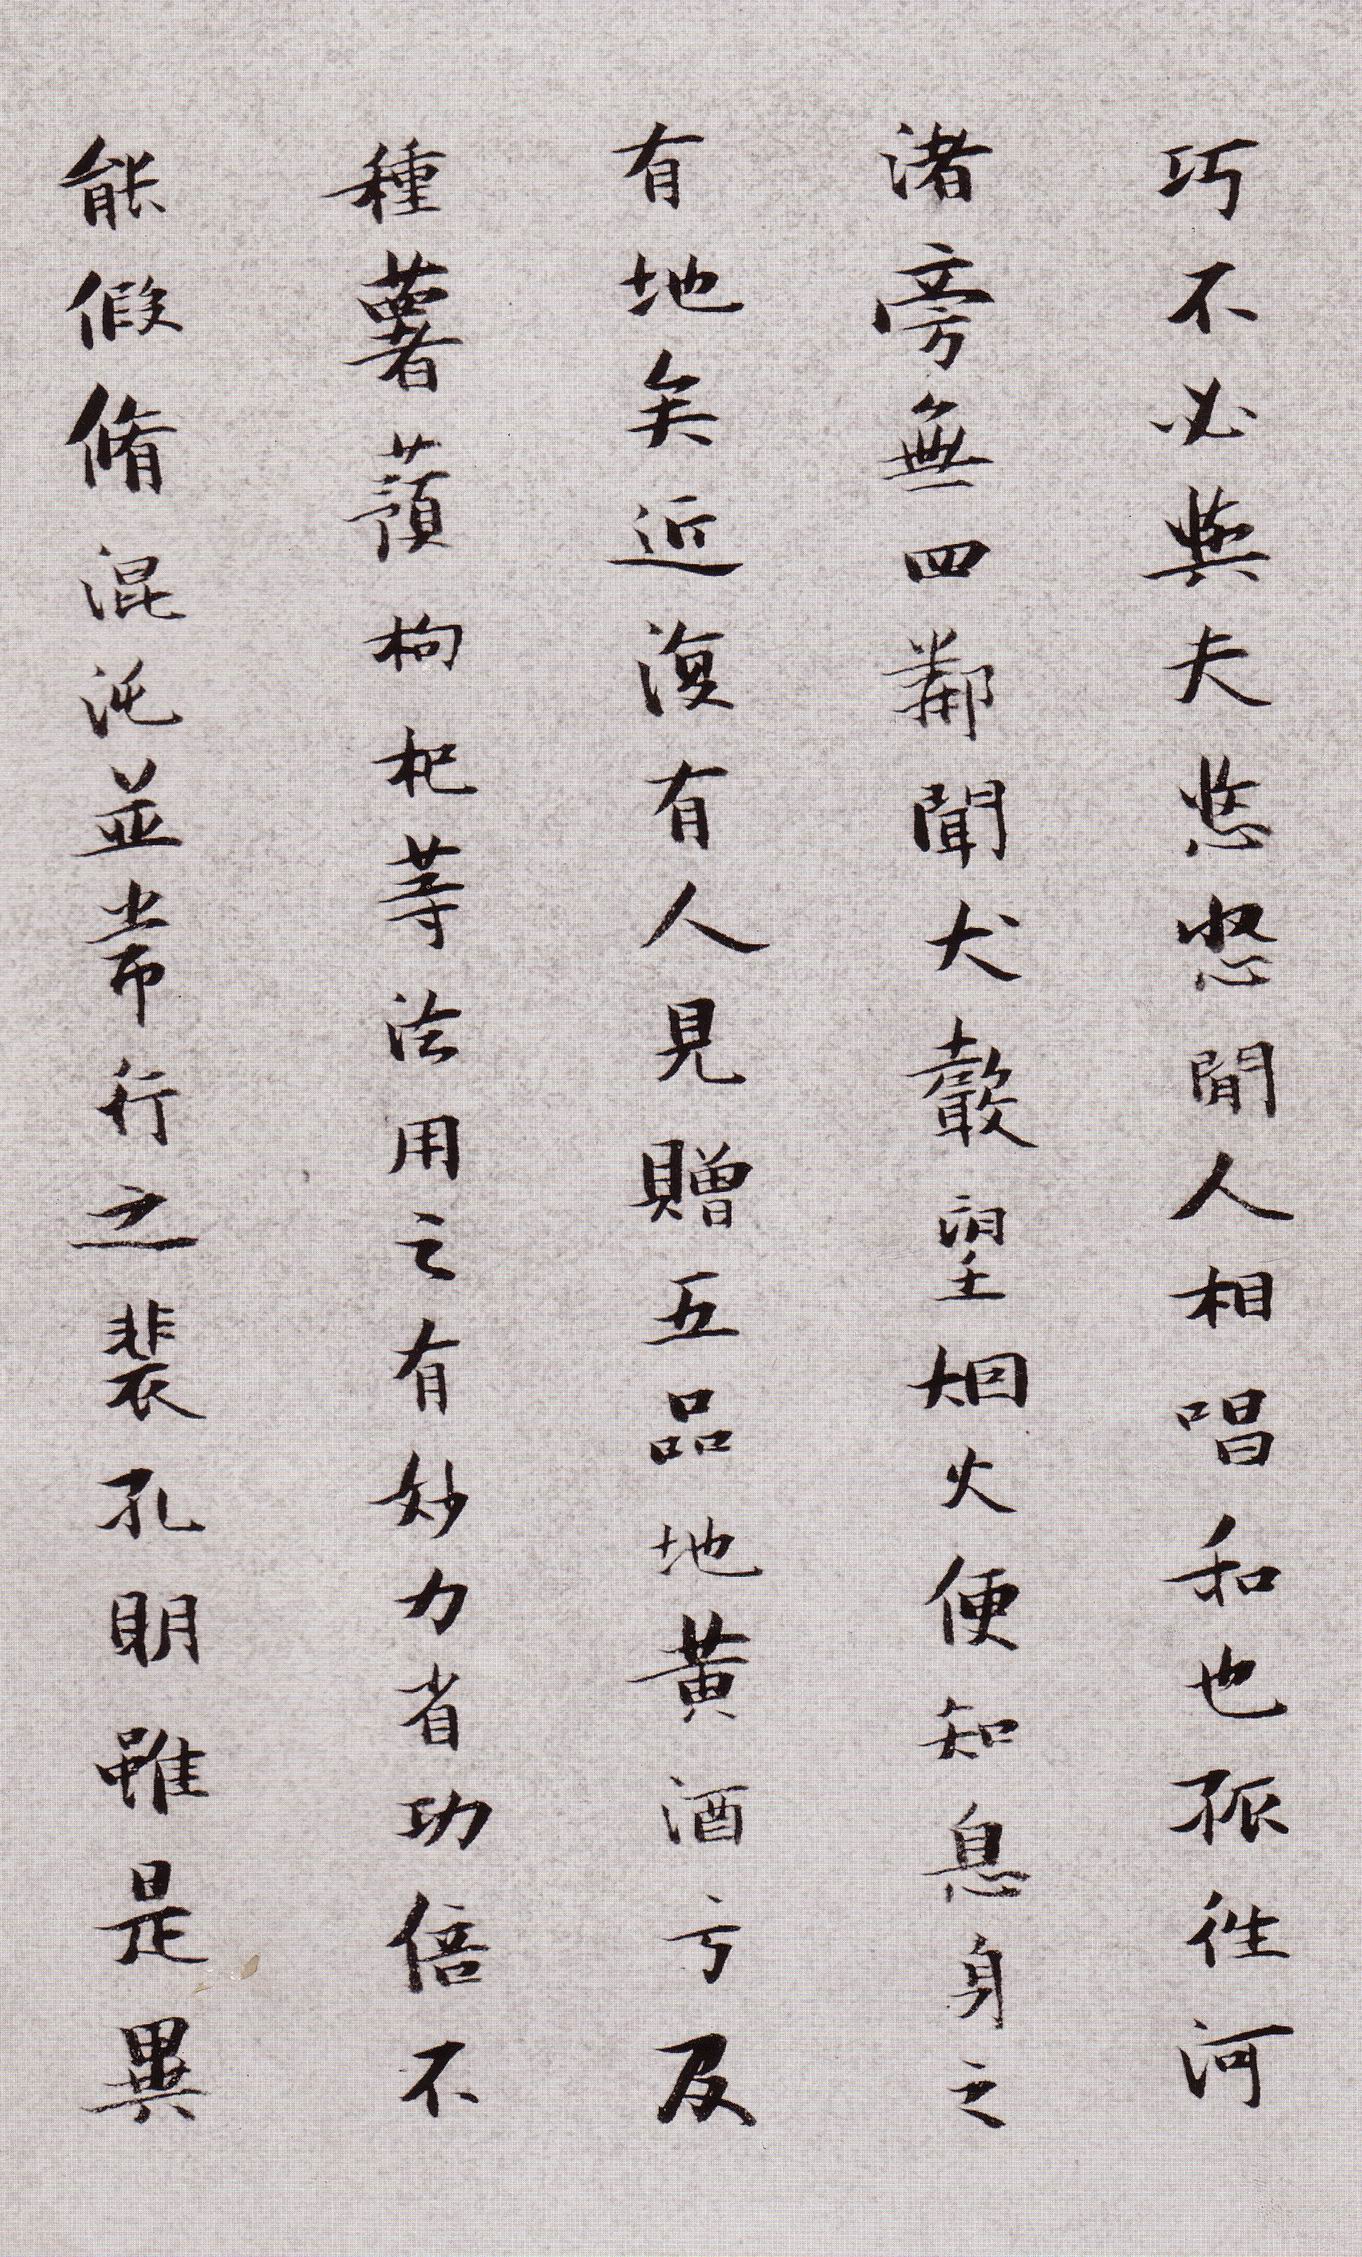 巧不必與夫悠悠閒人相唱和也孤往河
渚旁無四鄰聞犬聲望烟火便知息身之
有地矣近復有人見贈五品地黃酒方及
種薯蕷枸杞等法用之有妙力省功倍不
能假脩混沌並常行之裴孔明雖是異